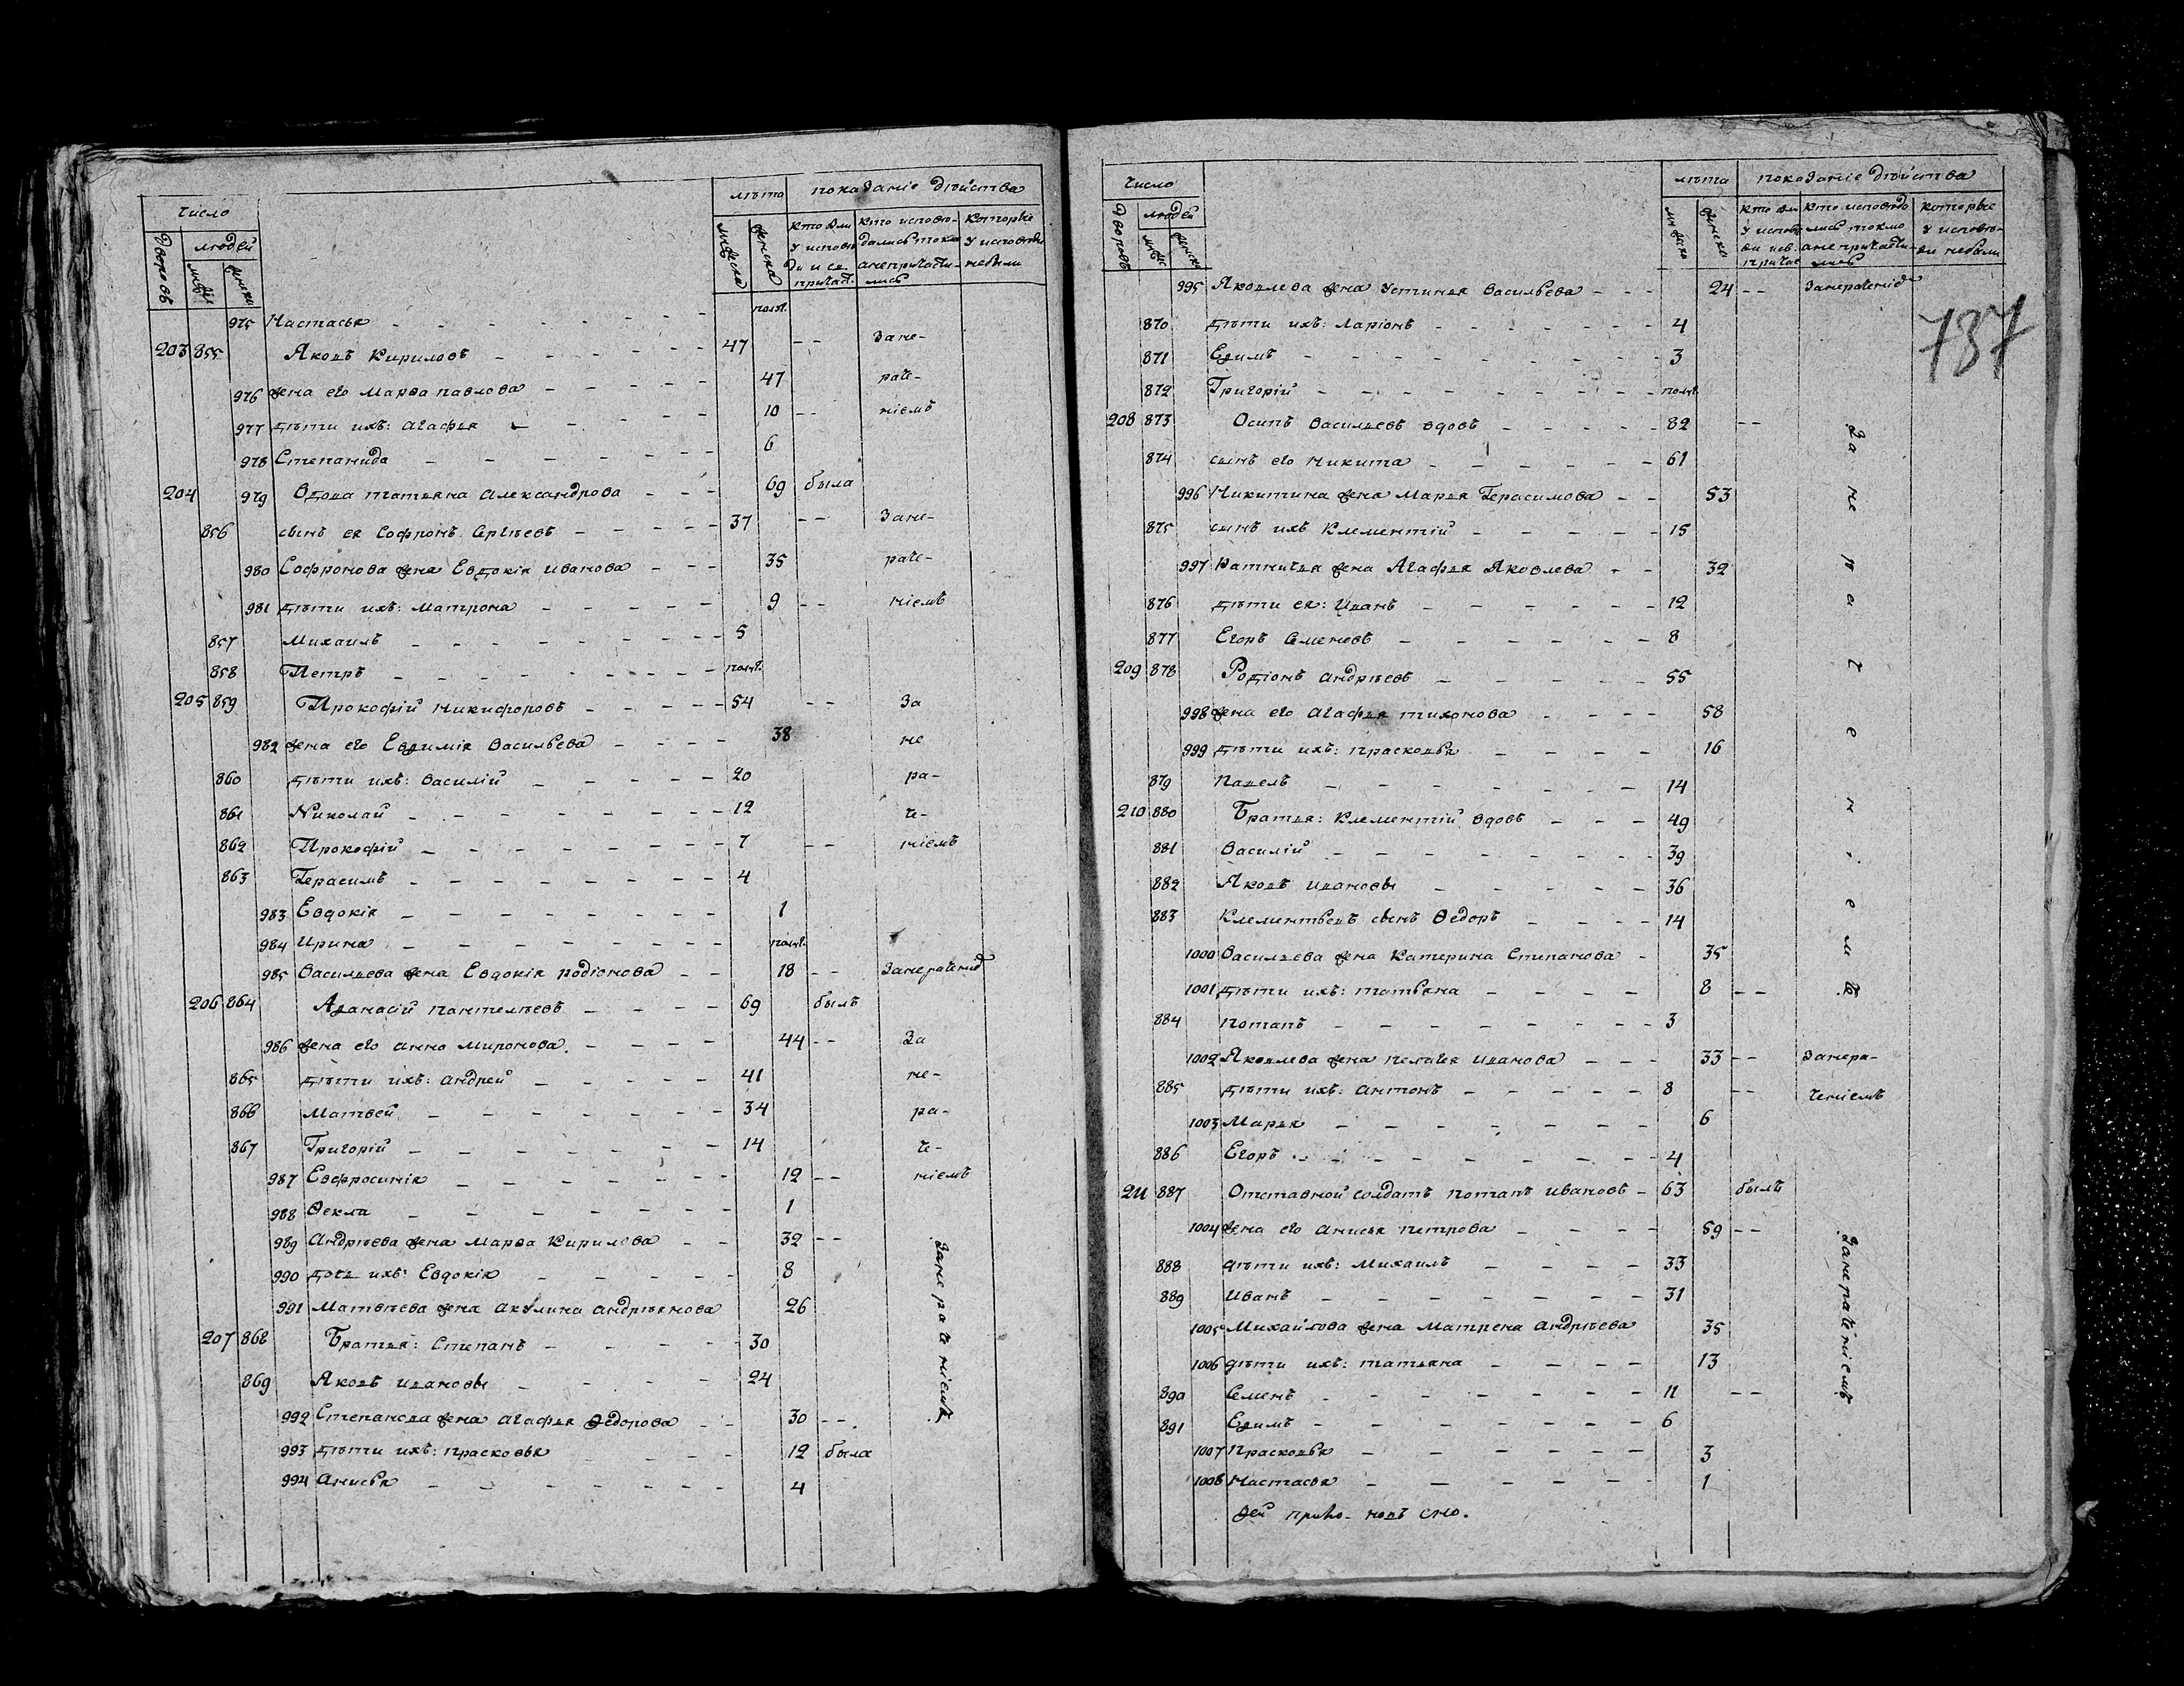 число
лѣта показаніе дѣйства
дворовъ людей
муж женска
мужеска женска
кто был у исповѣди и св. причас.
кто исповѣдались токмо а не причастились
которые у исповѣди небыли
975 Настасья полг.
203 855 Яковъ Кириловъ 47 -- Зане-
976 жена его Марѳа павлова 47 раче-
977 дѣти ихъ: агафья 10 -- ніемъ
978 Степанида 6
204 979 Вдова татьяна александрова 69 была
856 сынъ ея Софронъ Сергѣевъ 37 -- Зане-
980 Софронова жена Евдокія иванова 35 раче-
981 дѣти ихъ: матрона 9 -- ніемъ
857 Михаилъ 5
858 Петръ полг.
205 859 Прокофій никифоровъ 54 -- За
982 жена его Евѳимія васильева 38 не
860 дѣти ихъ: василій 20 ра-
861 Николай 12 че-
862 Прокофій 7 -- ніемъ
863 Герасимъ 4
983 Евдокія 1
984 Ирина полг.
985 Васильева жена Евдокія родіонова 18 -- Занераченіе
206 864 Аѳанасій пантелѣевъ 69 былъ
986 жена его анна миронова. 44 -- За
865 дѣти ихъ: андрей 41 не-
866 Матвей 34 ра-
867 Григорій 14 че-
987 Евфросинія 12 -- ніемъ
988 Ѳекла 1
989 Андрѣева жена марѳа Кирилова 32 --
990 дочь ихъ: Евдокія 8
991 Матвѣева жена акулина андрѣянова 26
207 868 Братья: Степанъ 30
869 Яковъ ивановы 24
992 Степанова жена агафья Ѳедорова 30 --
993 дѣти ихъ: прасковья 12 была
994 Анисья 4
Занераченіемъ
число
лѣта показаніе дѣйства
дворовъ людей
муж женска
мужеска женска
кто был у исповѣди и св. причас
кто исповѣдались токмо а не причастились
которые у исповѣди небыли
995 Яковлева жена устинья васильева 24 -- Занераченіе
737
870 дѣти ихъ: ларіонъ 4
871 Еѳимъ 3
872 Григорій полг.
208 873 Осипъ васильевъ вдовъ 82 --
874 сынъ его никита 61
996 Никитина жена марья Герасимова 53
875 сынъ ихъ Клементій 15
997 Ратничья жена Агафья Яковлева 32
876 дѣти ея: Иванъ 12
877 Егоръ Семеновъ 8
209 878 Родіонъ андрѣевъ 55
998 жена его агафья тихонова 58
999 дѣти ихъ: прасковья 16
879 павелъ 14
210 880 Братья: Клементій вдовъ 49
881 Василій 39
882 Яковъ ивановы 36
883 Клементьевъ сынъ Ѳедоръ 14
1000 Васильева жена Катерина Степанова 35
1001 дѣти ихъ: татьяна 8 --
884 потапъ 3
Занераченіемъ
1002 Яковлева жена пелагея иванова 33 -- Занера-
885 дѣти ихъ: антонъ 8 -- ченіемъ
1003 Марья 6
886 Егоръ 4
211 887 Отставной солдатъ потапъ ивановъ 63 былъ
1004 жена его анисья петрова 59 --
888 дѣти ихъ: михаилъ 33
889 Иванъ 31
1005 Михайлова жена матрена андрѣева 35
1006 дѣти ихъ: татьяна 13
890 Семенъ 11 --
891 Еѳимъ 6
1007 Прасковья 3
1008 Настасья 1
Занераченіемъ